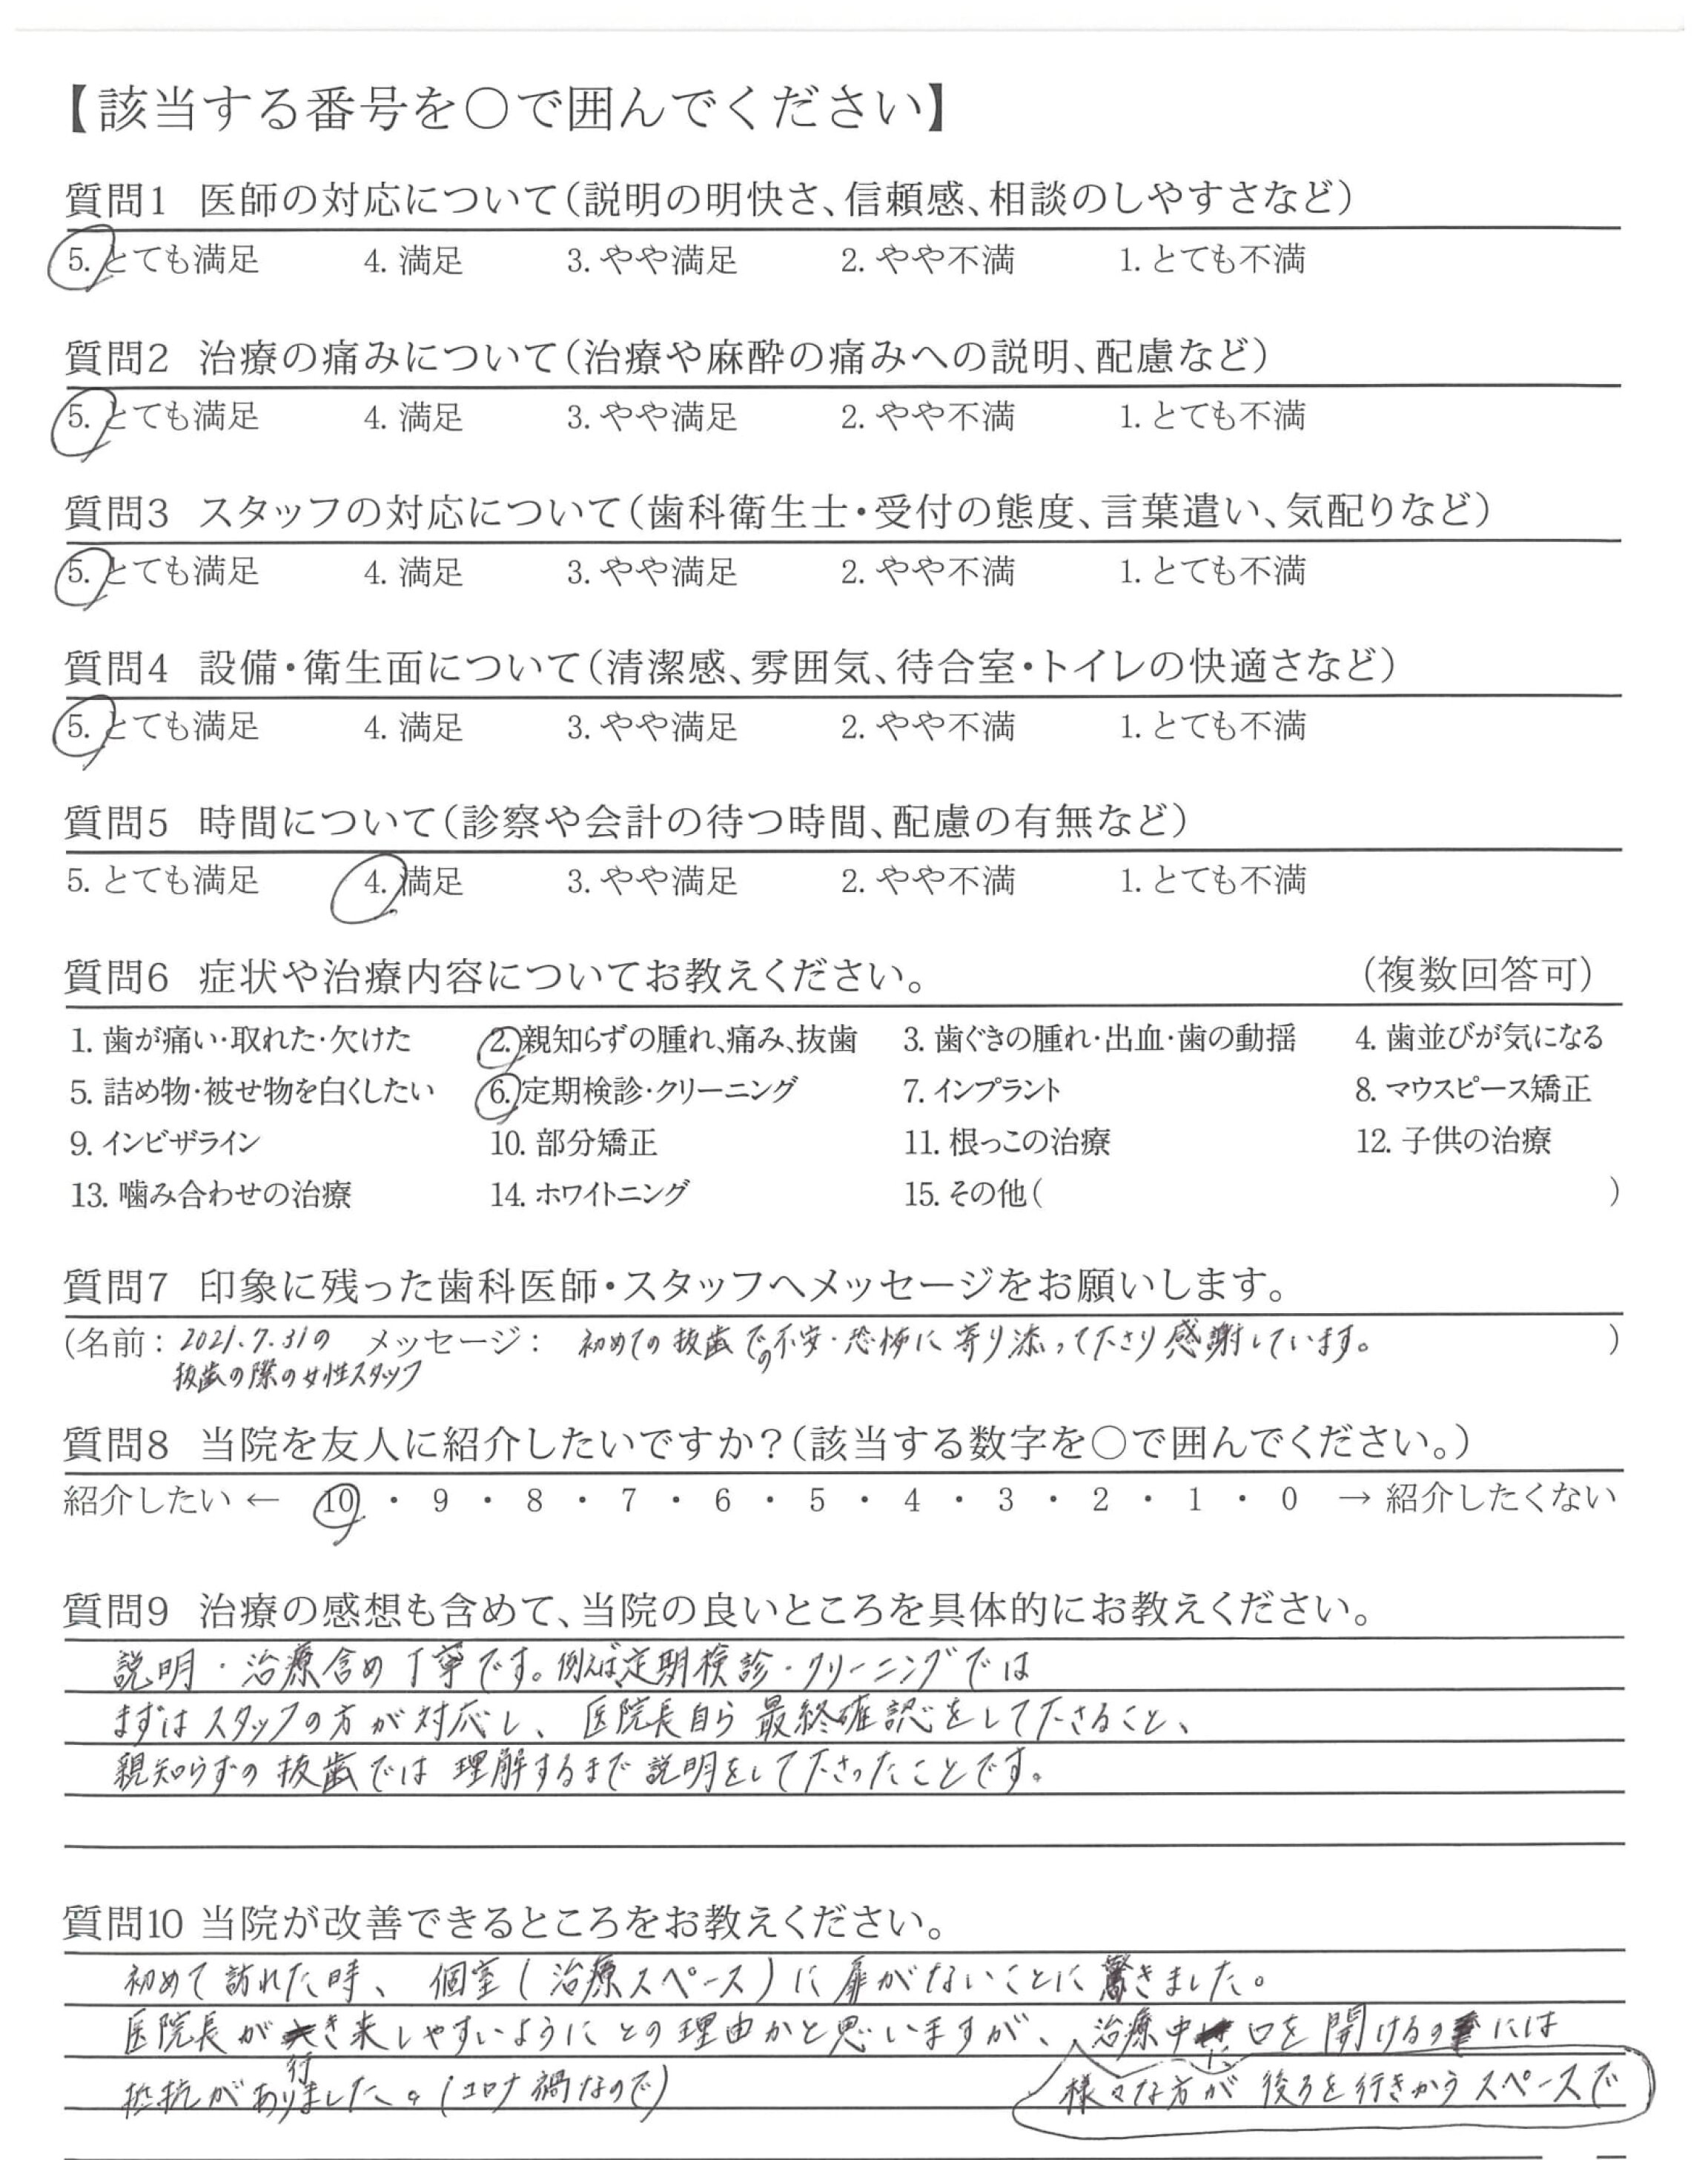 【該当する番号を○で囲んでください】
質問1 医師の対応について(説明の明快さ、信頼感、相談のしやすさなど)
5. とても満足 4. 満足 3. やや満足 2. やや不満 1. とても不満
質問2 治療の痛みについて(治療や麻酔の痛みへの説明、配慮など)
5. とても満足 4. 満足 3. やや満足 2. やや不満 1. とても不満
質問3 スタッフの対応について(歯科衛生士・受付の態度、言葉遣い、気配りなど)
5. とても満足 4. 満足 3. やや満足 2. やや不満 1. とても不満
質問4 設備・衛生面について(清潔感、雰囲気、待合室・トイレの快適さなど)
5. とても満足 4. 満足 3. やや満足 2. やや不満 1. とても不満
質問5 時間について(診察や会計の待つ時間、配慮の有無など)
5. とても満足 4. 満足 3. やや満足 2. やや不満 1. とても不満
質問6 症状や治療内容についてお教えください。 (複数回答可)
1. 歯が痛い・取れた・欠けた 2. 親知らずの腫れ、痛み、抜歯 3. 歯ぐきの腫れ・出血・歯の動揺 4. 歯並びが気になる
5. 詰め物・被せ物を白くしたい 6. 定期検診・クリーニング 7. インプラント 8. マウスピース矯正
9. インビザライン 10. 部分矯正 11. 根っこの治療 12. 子供の治療
13. 噛み合わせの治療 14. ホワイトニング 15. その他( )
質問7 印象に残った歯科医師・スタッフへメッセージをお願いします。
(名前: 2021.7.31の メッセージ: 初めての抜歯での不安・恐怖に寄り添って下さり感謝しています。 )
抜歯の際の女性スタッフ
質問8 当院を友人に紹介したいですか?(該当する数字を○で囲んでください。)
紹介したい ← 10 ・ 9 ・ 8 ・ 7 ・ 6 ・ 5 ・ 4 ・ 3 ・ 2 ・ 1 ・ 0 → 紹介したくない
質問9 治療の感想も含めて、当院の良いところを具体的にお教えください。
説明・治療含め丁寧です。例えば、定期検診・クリーニングでは
まずはスタッフの方が対応し、医院長自ら最終確認をして下さること、
親知らずの抜歯では理解するまで説明をして下さったことです。
質問10 当院が改善できるところをお教えください。
初めて訪れた時、個室(治療スペース)に扉がないことに驚きました。
医院長が行き来しやすいようにとの理由かと思いますが、治療中に口を開けるのには
抵抗がありました。(コロナ禍なので) 様々な方が後ろを行きかうスペースで